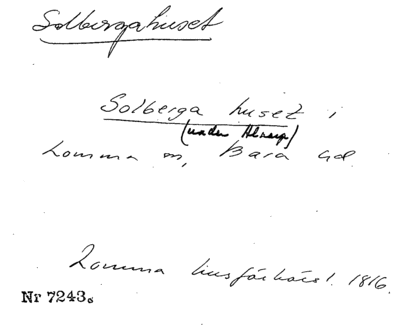 Solbergahuset
Solberga huset i
(under Alnarp)
Lomma sn, Bara hd
Lomma husförhörsl. 1816.
Nr 7243s